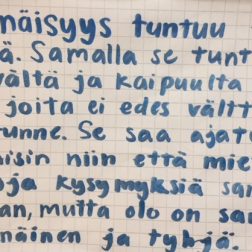 näisyys tuntuu
ä. Samalla se tunt
vältä ja kaipuulta
joita ei edes vältt
unne. Se saa ajat
isin niin että mie
oja kysymyksiä sa
an, mutta olo on sa
näinen ja tyhjä